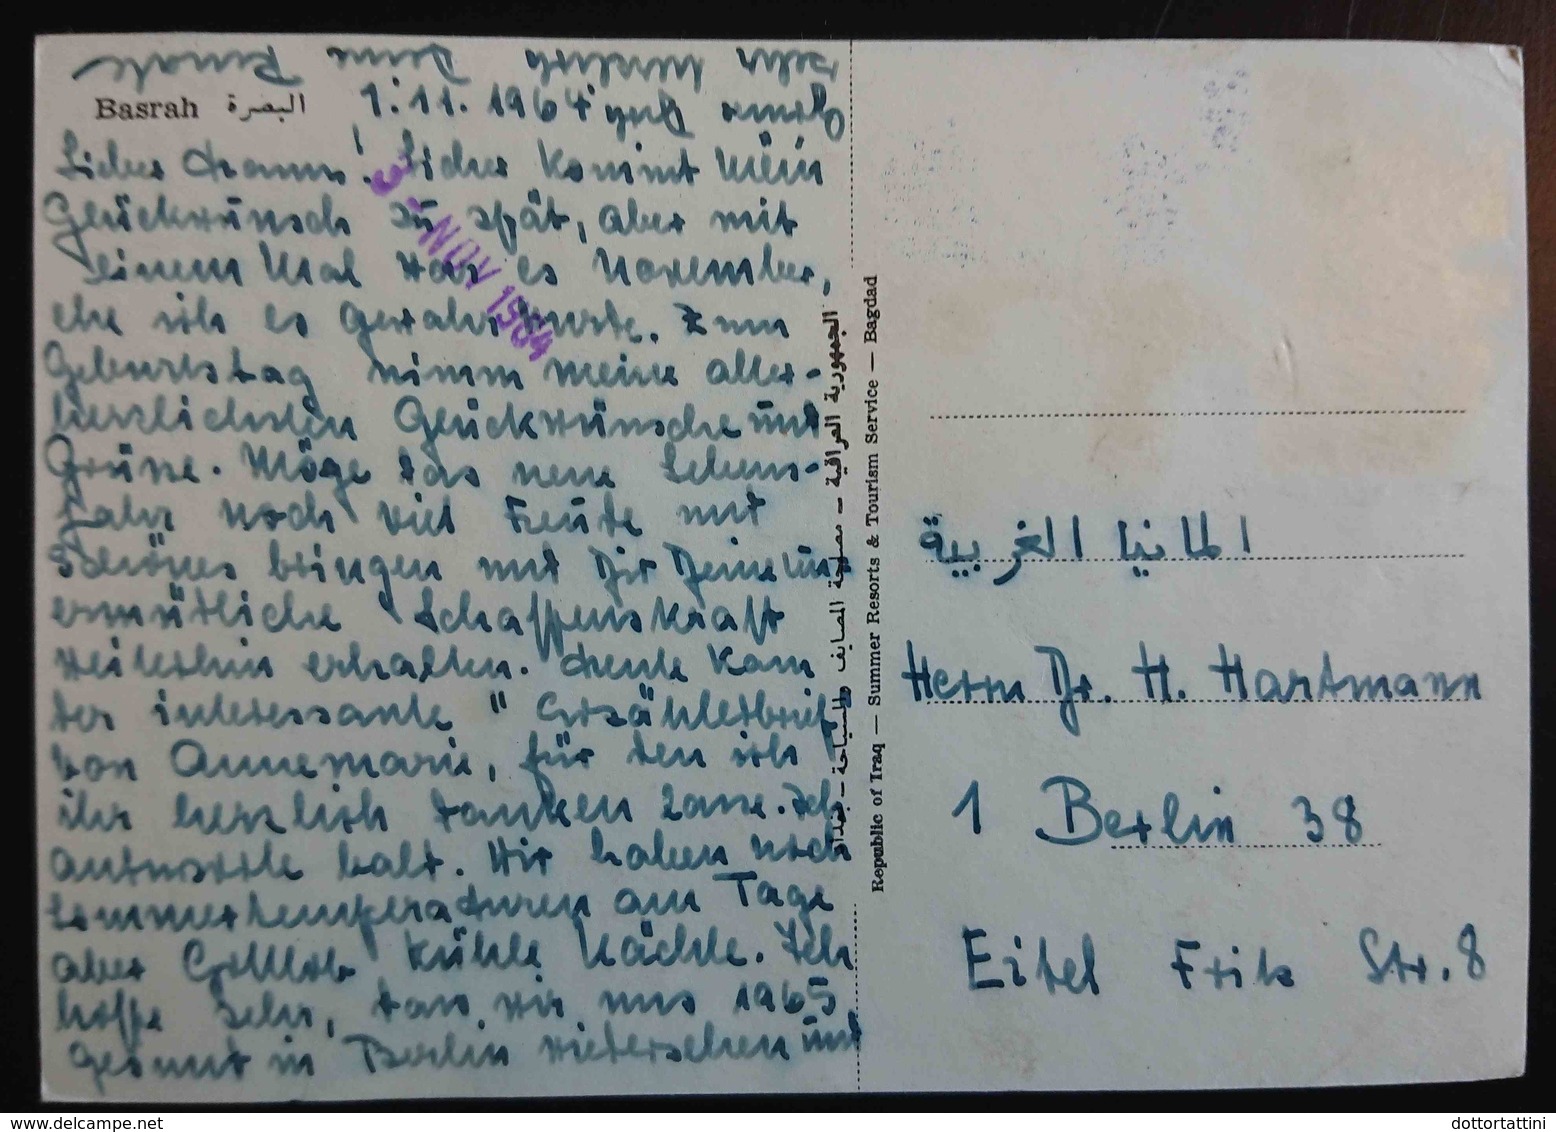 Basrah البصرة
1.11.1964
Lieber Hanns! Sicher kommt mein
Glückwunsch zu spät, aber mit
einem Mal war es November,
ehe ich es gewahr wurde. Zum
Geburtstag nimm meine aller-
herzlichsten Glückwünsche und
Grüße. Möge das neue Lebens-
jahr noch viel Freude und
Schönes bringen und Dir Deine un-
ermüdliche Schaffenskraft
weiterhin erhalten. Heute kam
der interessante "Erzählerbrief
von Annemarie, für den ich
ihr herzlich danken lasse. Ich
antworte bald. Wir haben noch
Sommertemperaturen am Tage
aber Gottlob kühle Nächte. Ich
hoffe sehr, dass wir uns 1965
gesund in Berlin wiedersehen und
sehr herzlich Deine Renate
3 - NOV 1964
الجمهورية العراقية - مصلحة المصايف والسياحة - بغداد
Republic of Iraq — Summer Resorts & Tourism Service — Bagdad
المانيا الغربية
Herrn Dr. H. Hartmann
1 Berlin 38
Eitel Fritz Str. 8
dottortattini